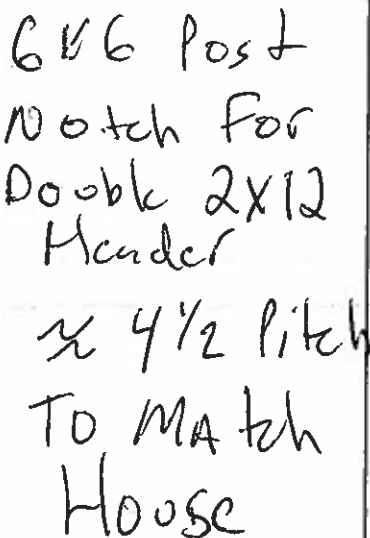 6x6 Post
Notch For
Double 2x12
Header
≈ 4 1/2 Pitch
To MAtch
House